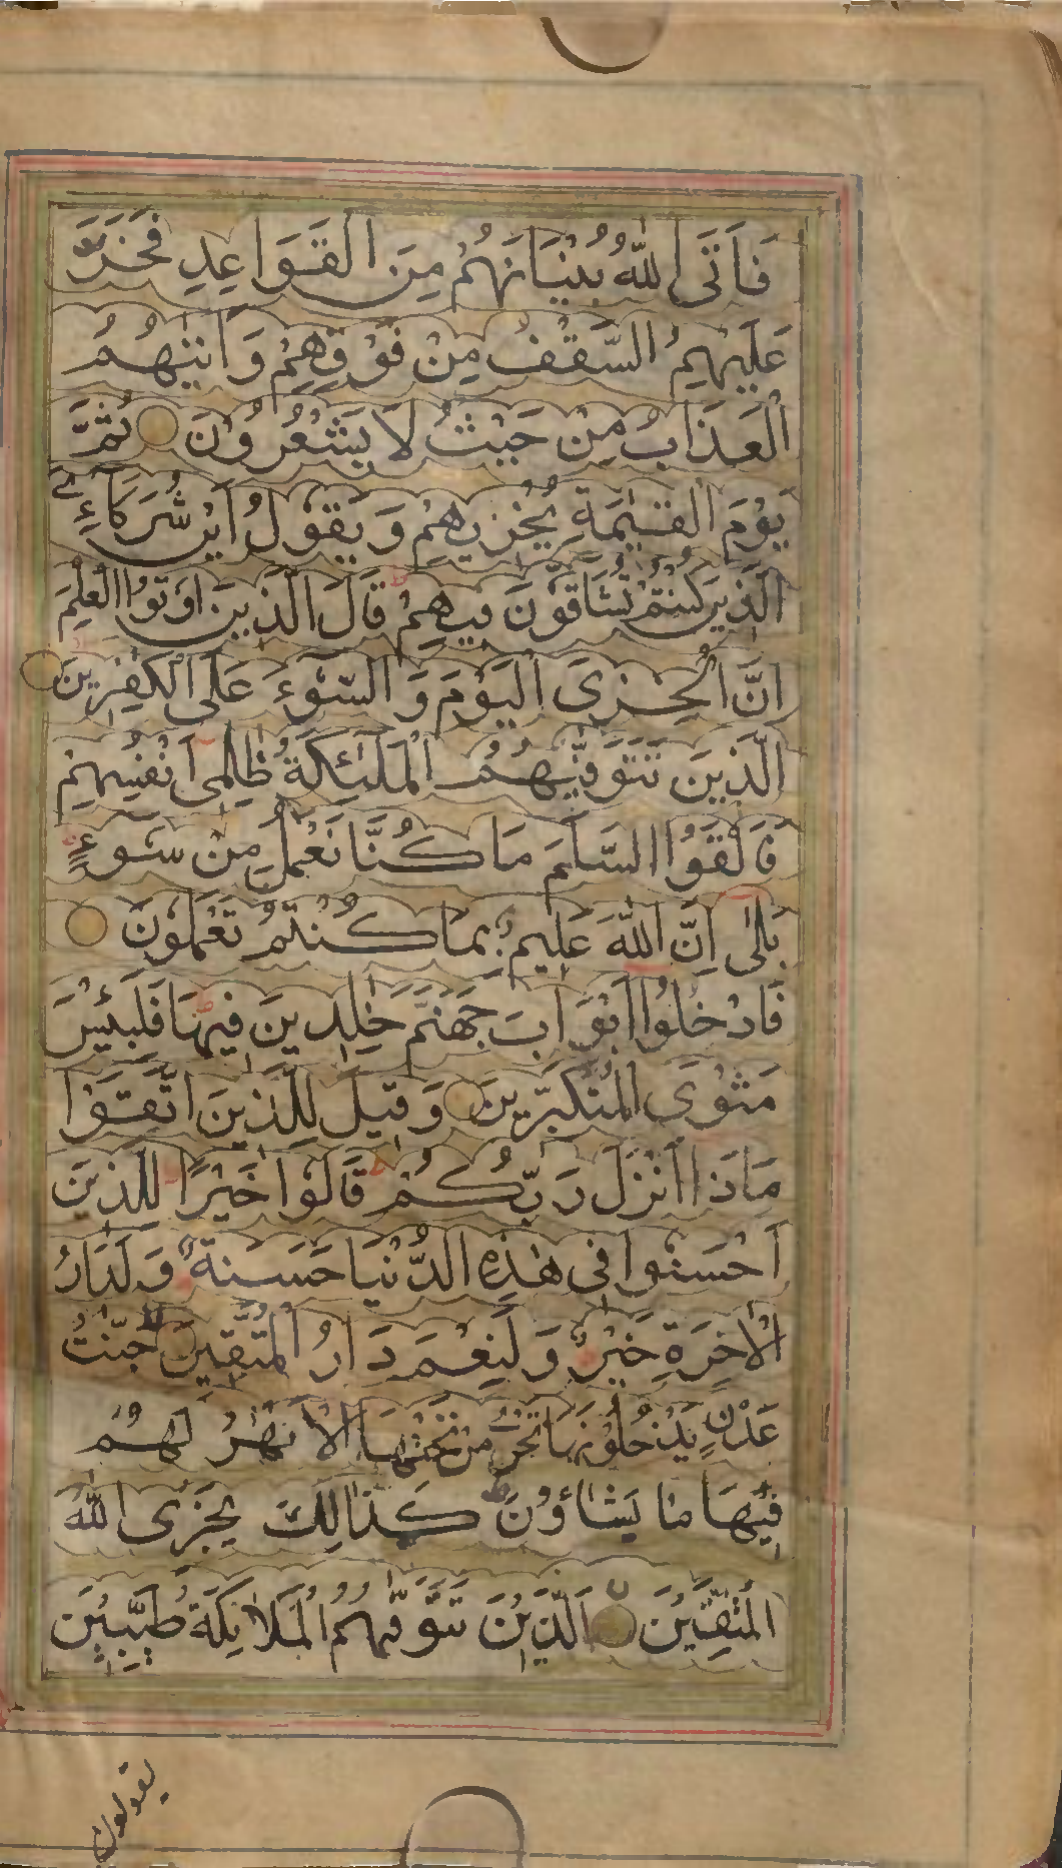 فَاَتَى اللّٰهُ بُنْيَانَهُمْ مِنَ الْقَوَاعِدِ فَخَرَّ
عَلَيْهِمُ السَّقْفُ مِنْ فَوْقِهِمْ وَاَتٰىهُمُ
الْعَذَابُ مِنْ حَيْثُ لَا يَشْعُرُوْنَ ثُمَّ
يَوْمَ الْقِيٰمَةِ يُخْزِيْهِمْ وَيَقُوْلُ اَيْنَ شُرَكَآءِيَ
الَّذِيْنَ كُنْتُمْ تُشَآقُّوْنَ فِيْهِمْ قَالَ الَّذِيْنَ اُوْتُوا الْعِلْمَ
اِنَّ الْخِزْيَ الْيَوْمَ وَالسُّوْٓءَ عَلَى الْكٰفِرِيْنَ
الَّذِيْنَ تَتَوَفّٰىهُمُ الْمَلٰٓئِكَةُ ظَالِمِىْ اَنْفُسِهِمْ
فَاَلْقَوُا السَّلَمَ مَا كُنَّا نَعْمَلُ مِنْ سُوْٓءٍ
بَلٰى اِنَّ اللّٰهَ عَلِيْمٌ بِمَا كُنْتُمْ تَعْمَلُوْنَ
فَادْخُلُوْا اَبْوَابَ جَهَنَّمَ خٰلِدِيْنَ فِيْهَا فَلَبِئْسَ
مَثْوَى الْمُتَكَبِّرِيْنَ وَقِيْلَ لِلَّذِيْنَ اتَّقَوْا
مَاذَا اَنْزَلَ رَبُّكُمْ قَالُوْا خَيْرًا لِلَّذِيْنَ
اَحْسَنُوْا فِى هٰذِهِ الدُّنْيَا حَسَنَةٌ وَلَدَارُ
الْاٰخِرَةِ خَيْرٌ وَلَنِعْمَ دَارُ الْمُتَّقِيْنَ جَنّٰتُ
عَدْنٍ يَدْخُلُوْنَهَا تَجْرِىْ مِنْ تَحْتِهَا الْاَنْهٰرُ لَهُمْ
فِيْهَا مَا يَشَآؤُنَ كَذَالِكَ يَجْزِى اللّٰهُ
الْمُتَّقِيْنَ اَلَّذِيْنَ تَتَوَفّٰىهُمُ الْمَلَائِكَةُ طَيِّبِيْنَ
يقولون